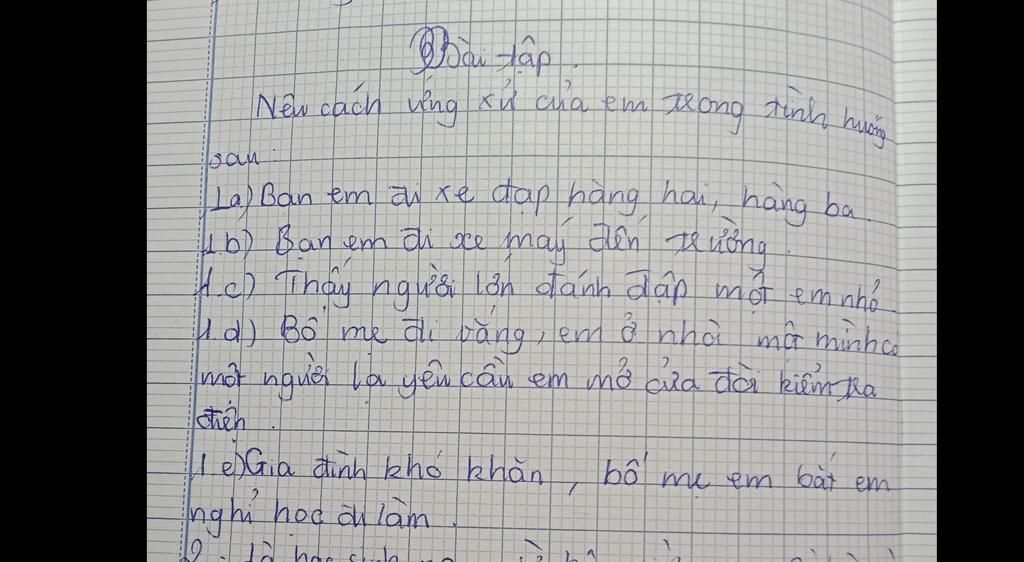 Bài tập.
Nêu cách ứng xử của em trong tình huống
sau:
1a) Bạn em đi xe đạp hàng hai, hàng ba.
1.b) Bạn em đi xe máy đến trường.
1.c) Thấy người lớn đánh đập một em nhỏ
1.d) Bố mẹ đi vắng, em ở nhà một mình có
một người lạ yêu cầu em mở cửa đòi kiểm tra
điện.
1 e) Gia đình khó khăn, bố mẹ em bắt em
nghỉ học đi làm.
2. Là học sinh